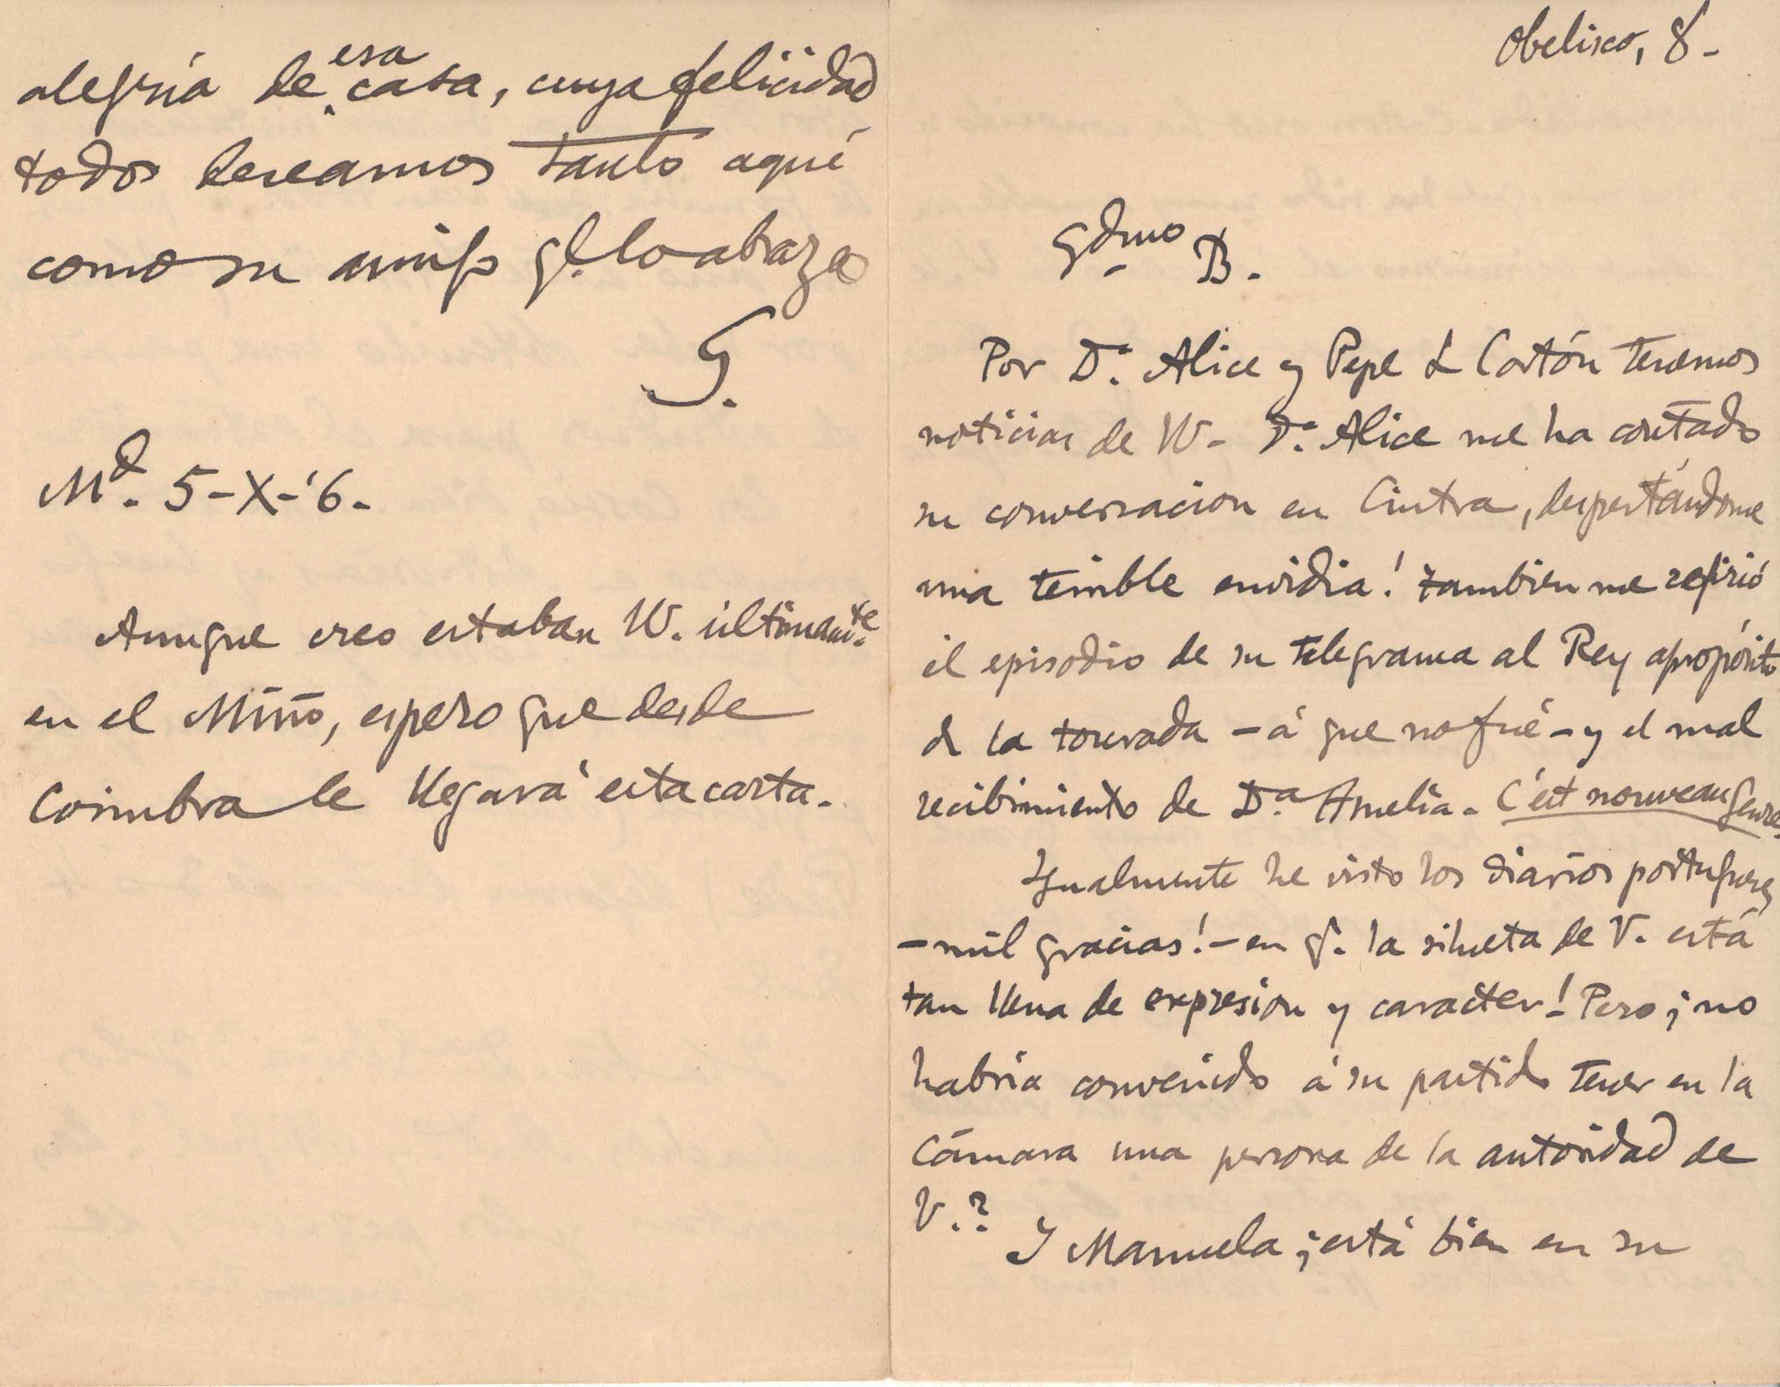 Obelisco, 8-
Qdmo B.
Por Dª Alice y Pepe L Cortón tenemos
noticias de VV- Dª Alice me ha contado
su conversacion en Cintra, despertándome
una terrible envidia! tambien me refirió
el episodio de su telegrama al Rey apropósito
de la tourada - á que no fué - y el mal
recibimiento de Dª Amelia. C'est nouveau genre.
Igualmente he visto los diarios portugueses
- mil gracias! - en q. la silueta de V. está
tan llena de expresion y caracter! Pero ¿no
habría convenido á su partido tener en la
Cámara una persona de la autoridad de
V.?
Y Manuela ¿está bien en su
alegría de esa casa, cuya felicidad
todos deseamos tanto aquí
como su amigo q. lo abraza
G.
Md. 5-X-'6-
Aunque creo estaban VV. últimamte
en el Miño, espero que desde
Coimbra le llegará esta carta.